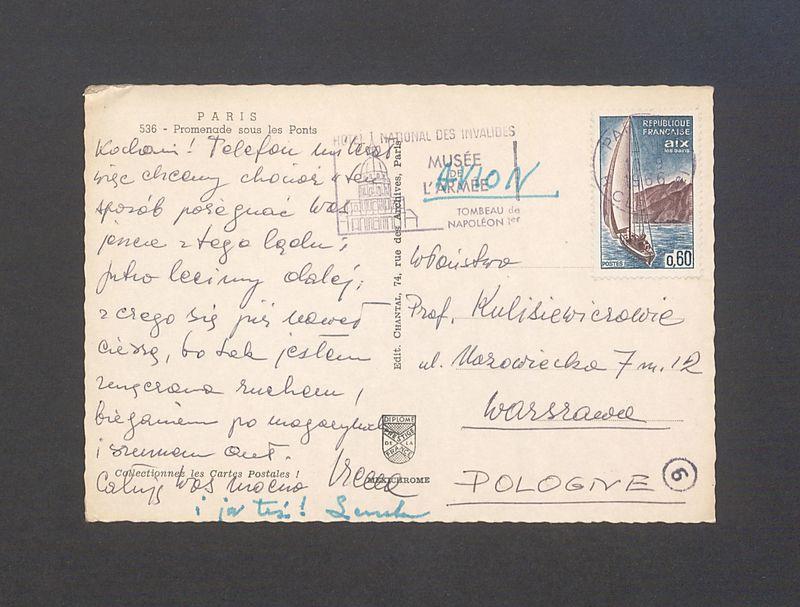 PARIS
536 - Promenade sous les Ponts
Kochani! Telefon
więc chcemy chociaż w ten
sposób pożegnać Was
jeszcze z tego lądu;
jutro lecimy dalej,
z czego się już nawet
cieszę, bo tak jestem
zmęczona ruchem,
bieganiem po magazynach
i szumem aut.
Całuję Was mocno
i ja też!
Collectionnez les Cartes Postales !
HOTEL NATIONAL DES INVALIDES
MUSÉE
DE
L'ARMÉE
TOMBEAU de
NAPOLÉON 1er
AVION
Edit. CHANTAL, 74, rue des Archives, Paris
DIPLOME
PRESTIGE
DE LA
FRANCE
MEXICHROME
REPUBLIQUE
FRANÇAISE
aix
les bains
POSTES
0,60
PARIS
1966
W Państwo
Prof. Kulisiewiczowie
ul. Mazowiecka 7 m. 12
Warszawa
POLOGNE
6